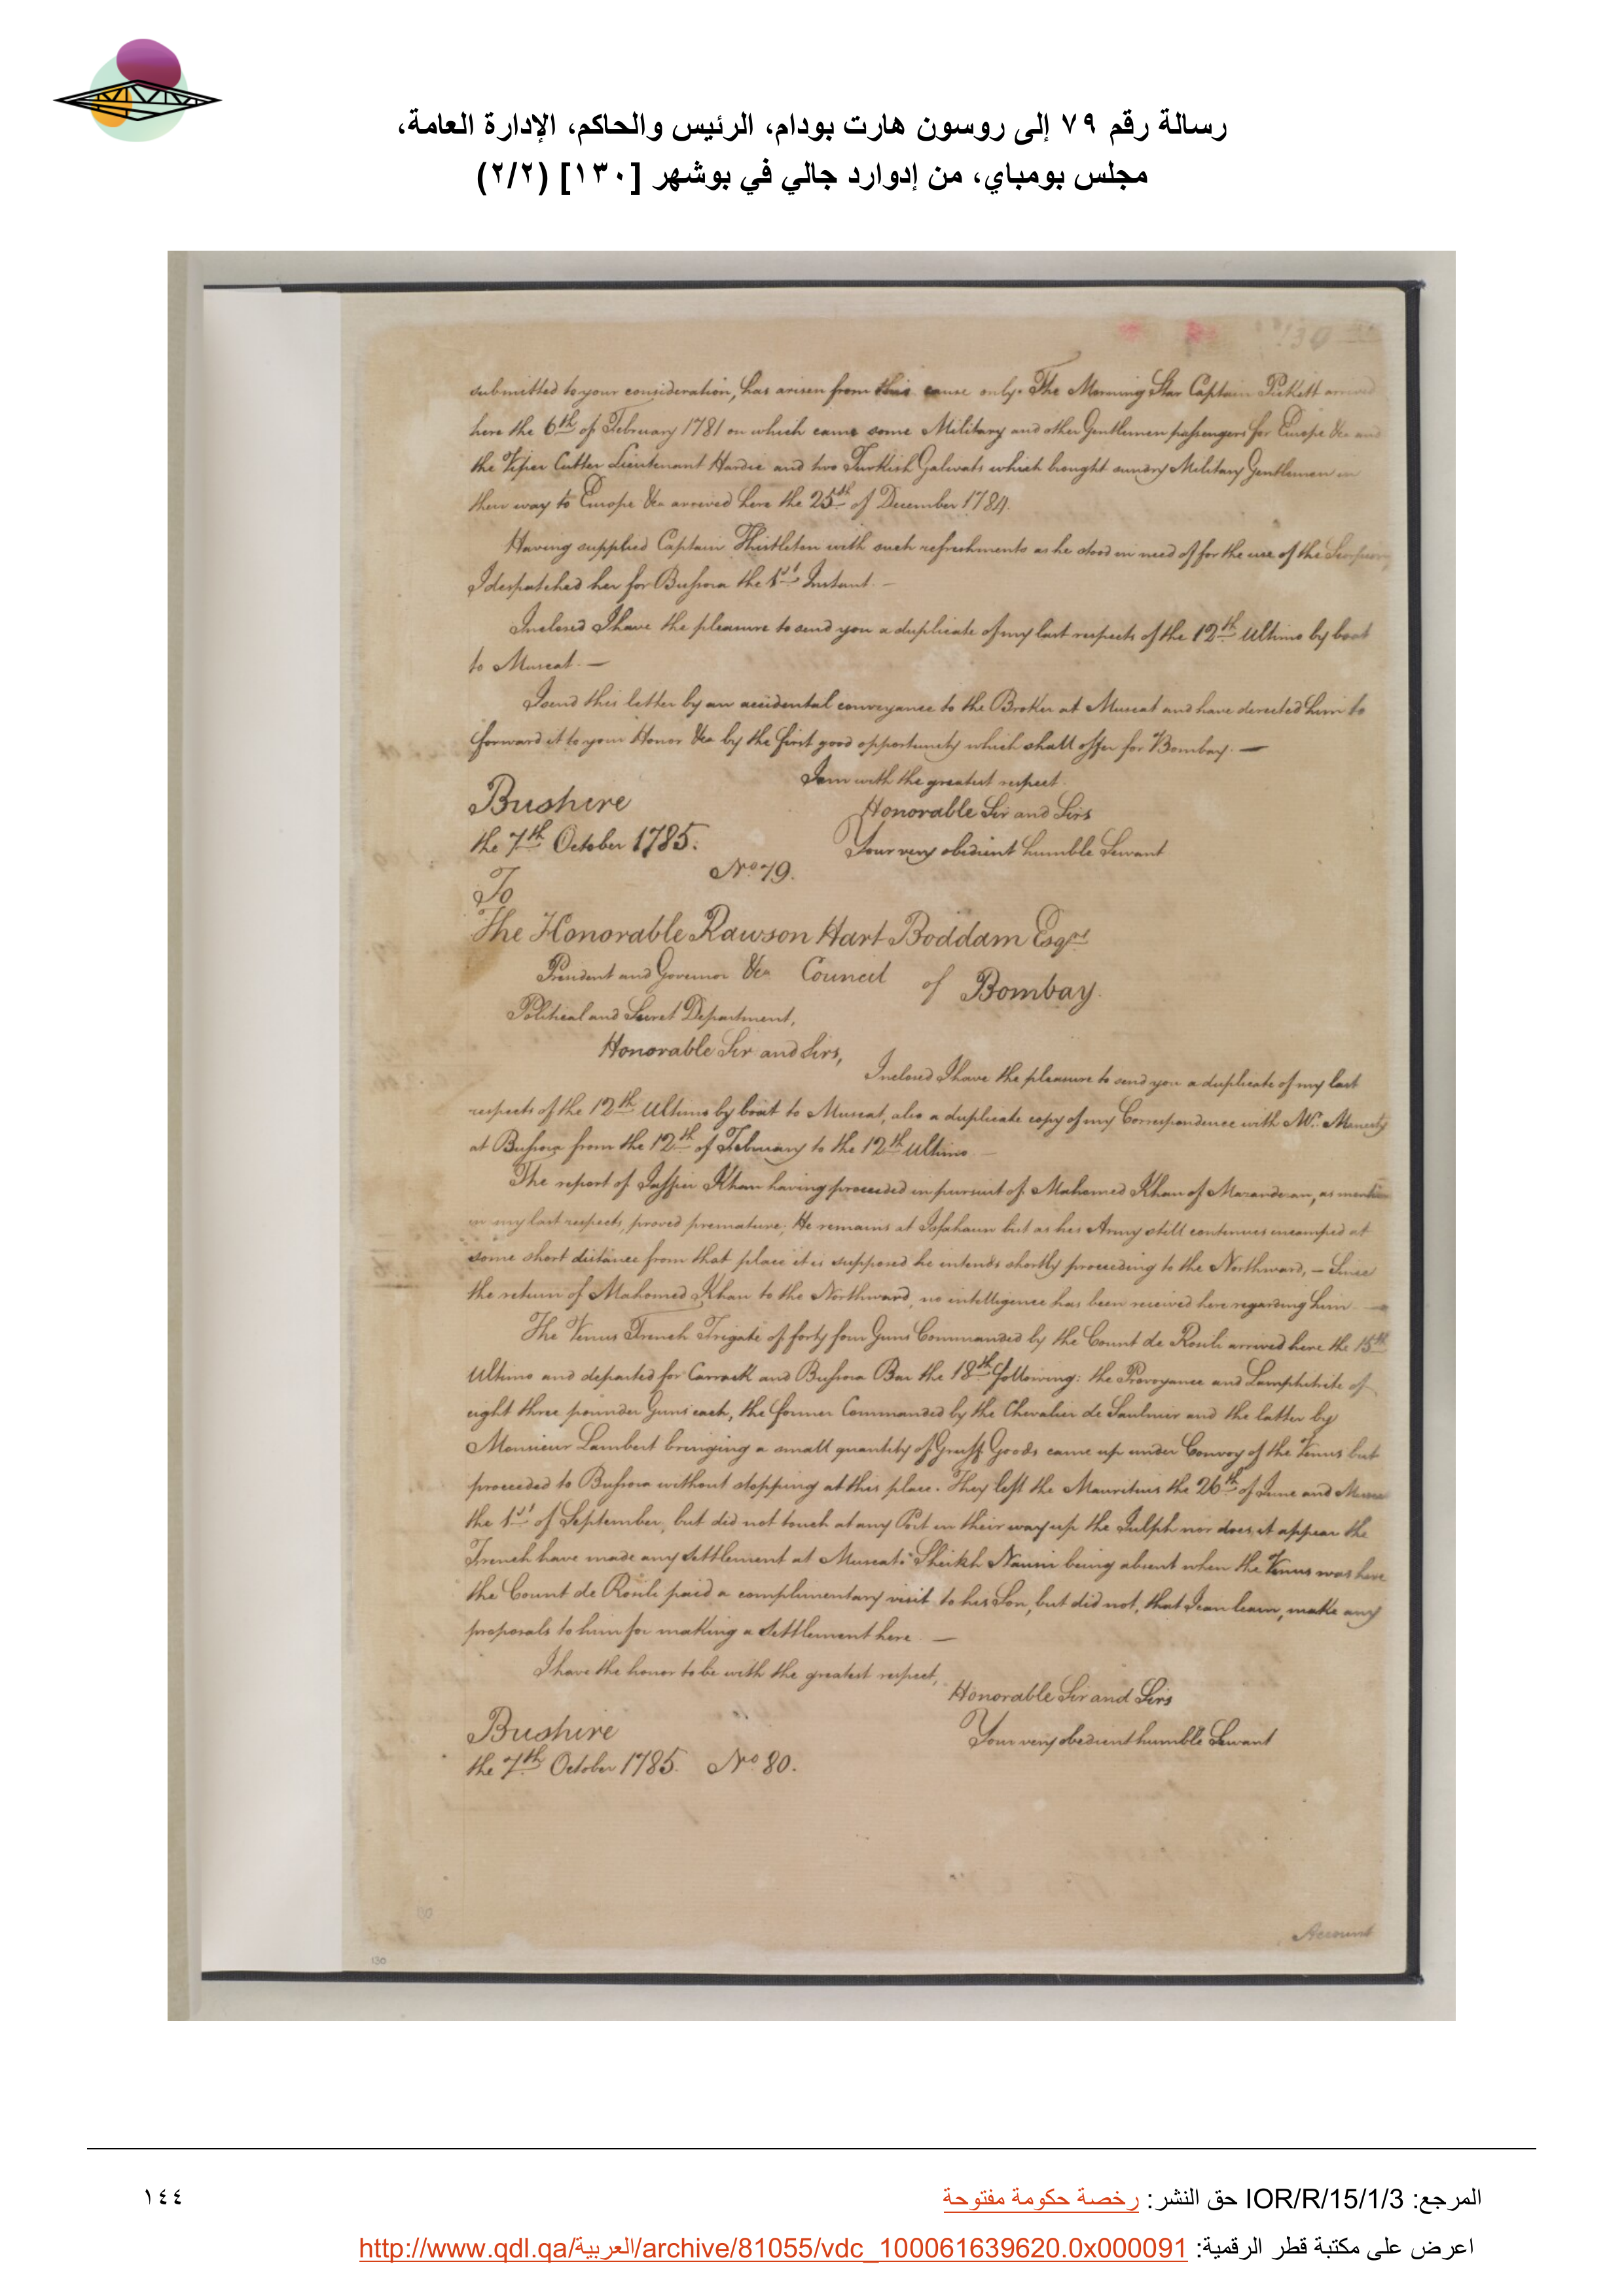 رسالة رقم ٧٩ إلى روسون هارت بودام، الرئيس والحاكم، الإدارة العامة،
مجلس بومباي، من إدوارد جالي في بوشهر [١٣٠] (٢/٢)
130
submitted to your consideration, has arisen from this cause only. The Morning Star Captain Pickett arrived
here the 6th of February 1781 on which came some Military and other Gentlemen passengers for Europe &ca and
the Viper Cutter Lieutenant Hardie and two Turkish Galwats which brought sundry Military Gentlemen in
their way to Europe &ca arrived here the 25th of December 1784.
Having supplied Captain Thistleton with such refreshments as he stood in need of for the use of the
I despatched her for Bussora the 1st Instant. —
Inclosed I have the pleasure to send you a duplicate of my last respects of the 12th Ultimo by boat
to Muscat. —
I send this letter by an accidental conveyance to the Broker at Muscat and have directed him to
forward it to your Honor &ca by the first good opportunity which shall offer for Bombay. —
I am with the greatest respect.
Bushire
Honorable Sir and Sirs
the 7th October 1785.
Your very obedient humble Servant
No 79.
To
The Honorable Rawson Hart Boddam Esqre
President and Governor &ca Council of Bombay.
Political and Secret Department,
Honorable Sir and Sirs,
Inclosed I have the pleasure to send you a duplicate of my last
respects of the 12th Ultimo by boat to Muscat, also a duplicate copy of my Correspondence with Mr. Manesty
at Bussora from the 12th of February to the 12th Ultimo —
The report of Jaffier Khan having proceeded in pursuit of Mahomed Khan of Mazanderan, as mention
in my last respects, proved premature; He remains at Isfahaun but as his Army still continues encamped at
some short distance from that place it is supposed he intends shortly proceeding to the Northward, — Since
the return of Mahomed Khan to the Northward, no intelligence has been received here regarding him —
The Venus French Frigate of forty four Guns Commanded by the Count de Rosili arrived here the 15th
Ultimo and departed for Carrack and Bussora Bar the 18th following: the Provoyance and Lamphitrite of
eight three pounder Guns each, the former Commanded by the Chevalier de Saulnier and the latter by
Monsieur Lambert bringing a small quantity of Gruff Goods came up under Convoy of the Venus but
proceeded to Bussora without stopping at this place. They left the Mauritius the 26th of June and
the 1st of September, but did not touch at any Port in their way up the Gulph nor does it appear the
French have made any settlement at Muscat: Sheikh Nassir being absent when the Venus was here
the Count de Rosili paid a complimentary visit to his Son, but did not, that I can learn, make any
proposals to him for making a settlement here. —
I have the honor to be with the greatest respect,
Honorable Sir and Sirs
Bushire
Your very obedient humble Servant
the 7th October 1785. No 80.
Account
130
130
المرجع: IOR/R/15/1/3 حق النشر: رخصة حكومة مفتوحة
١٤٤
اعرض على مكتبة قطر الرقمية: http://www.qdl.qa/العربية/archive/81055/vdc_100061639620.0x000091